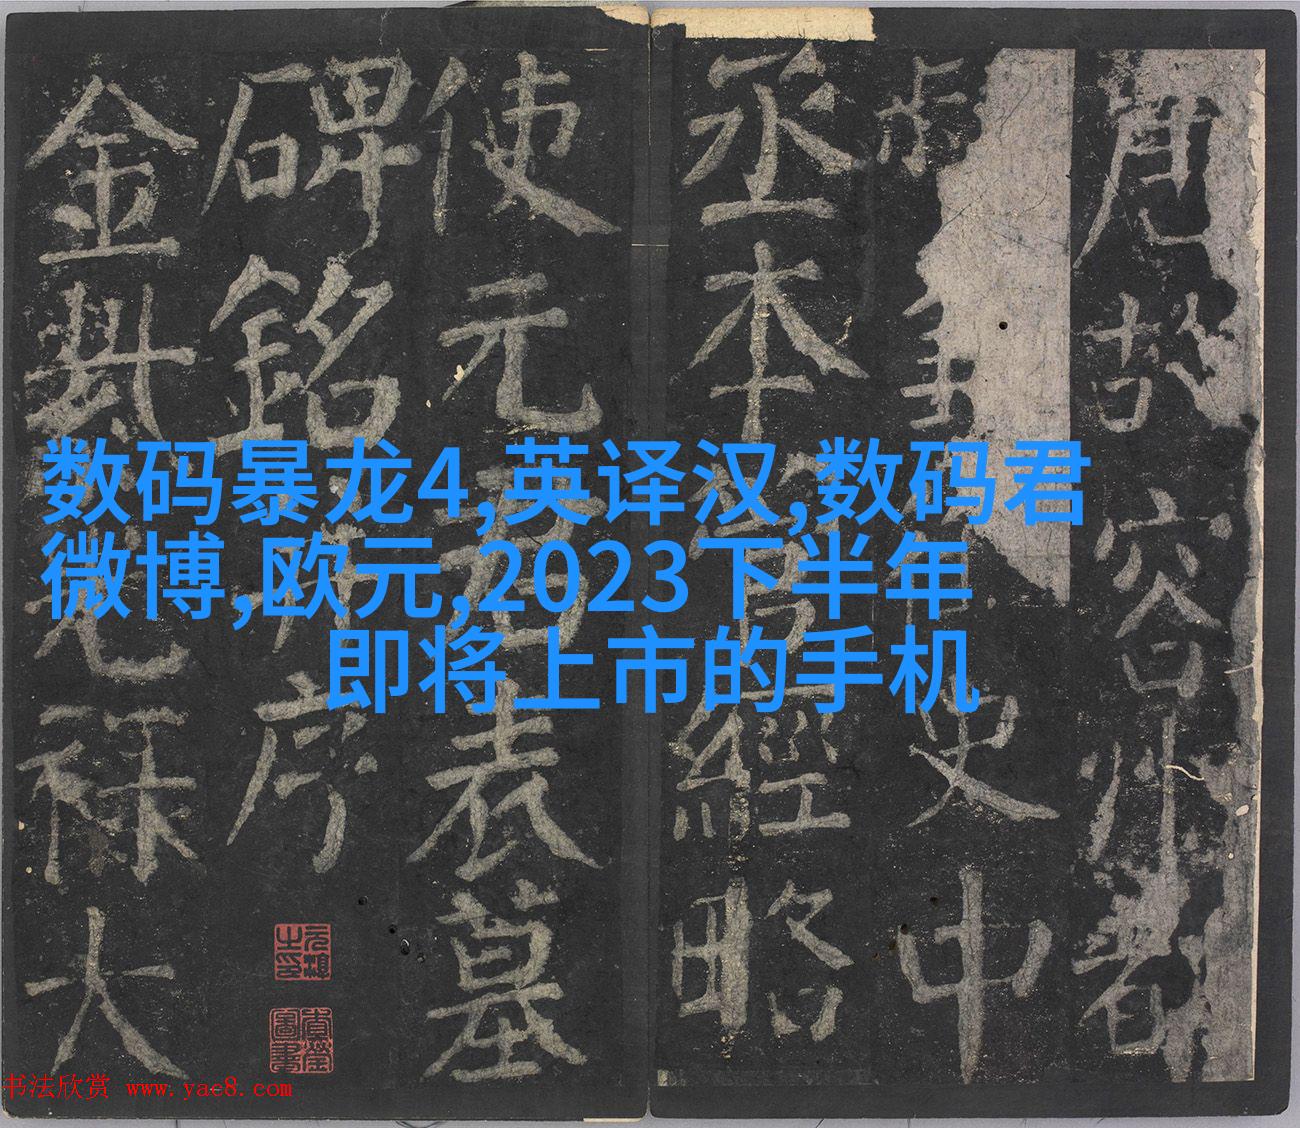 数码暴龙4,英译汉,数码君
微博,欧元,2023下半年
即将上市的手机
唐故容州都
史中
丞本管經略
使元君表墓
碑銘并序
金紫光祿大
书法欣赏 www.yac8.com